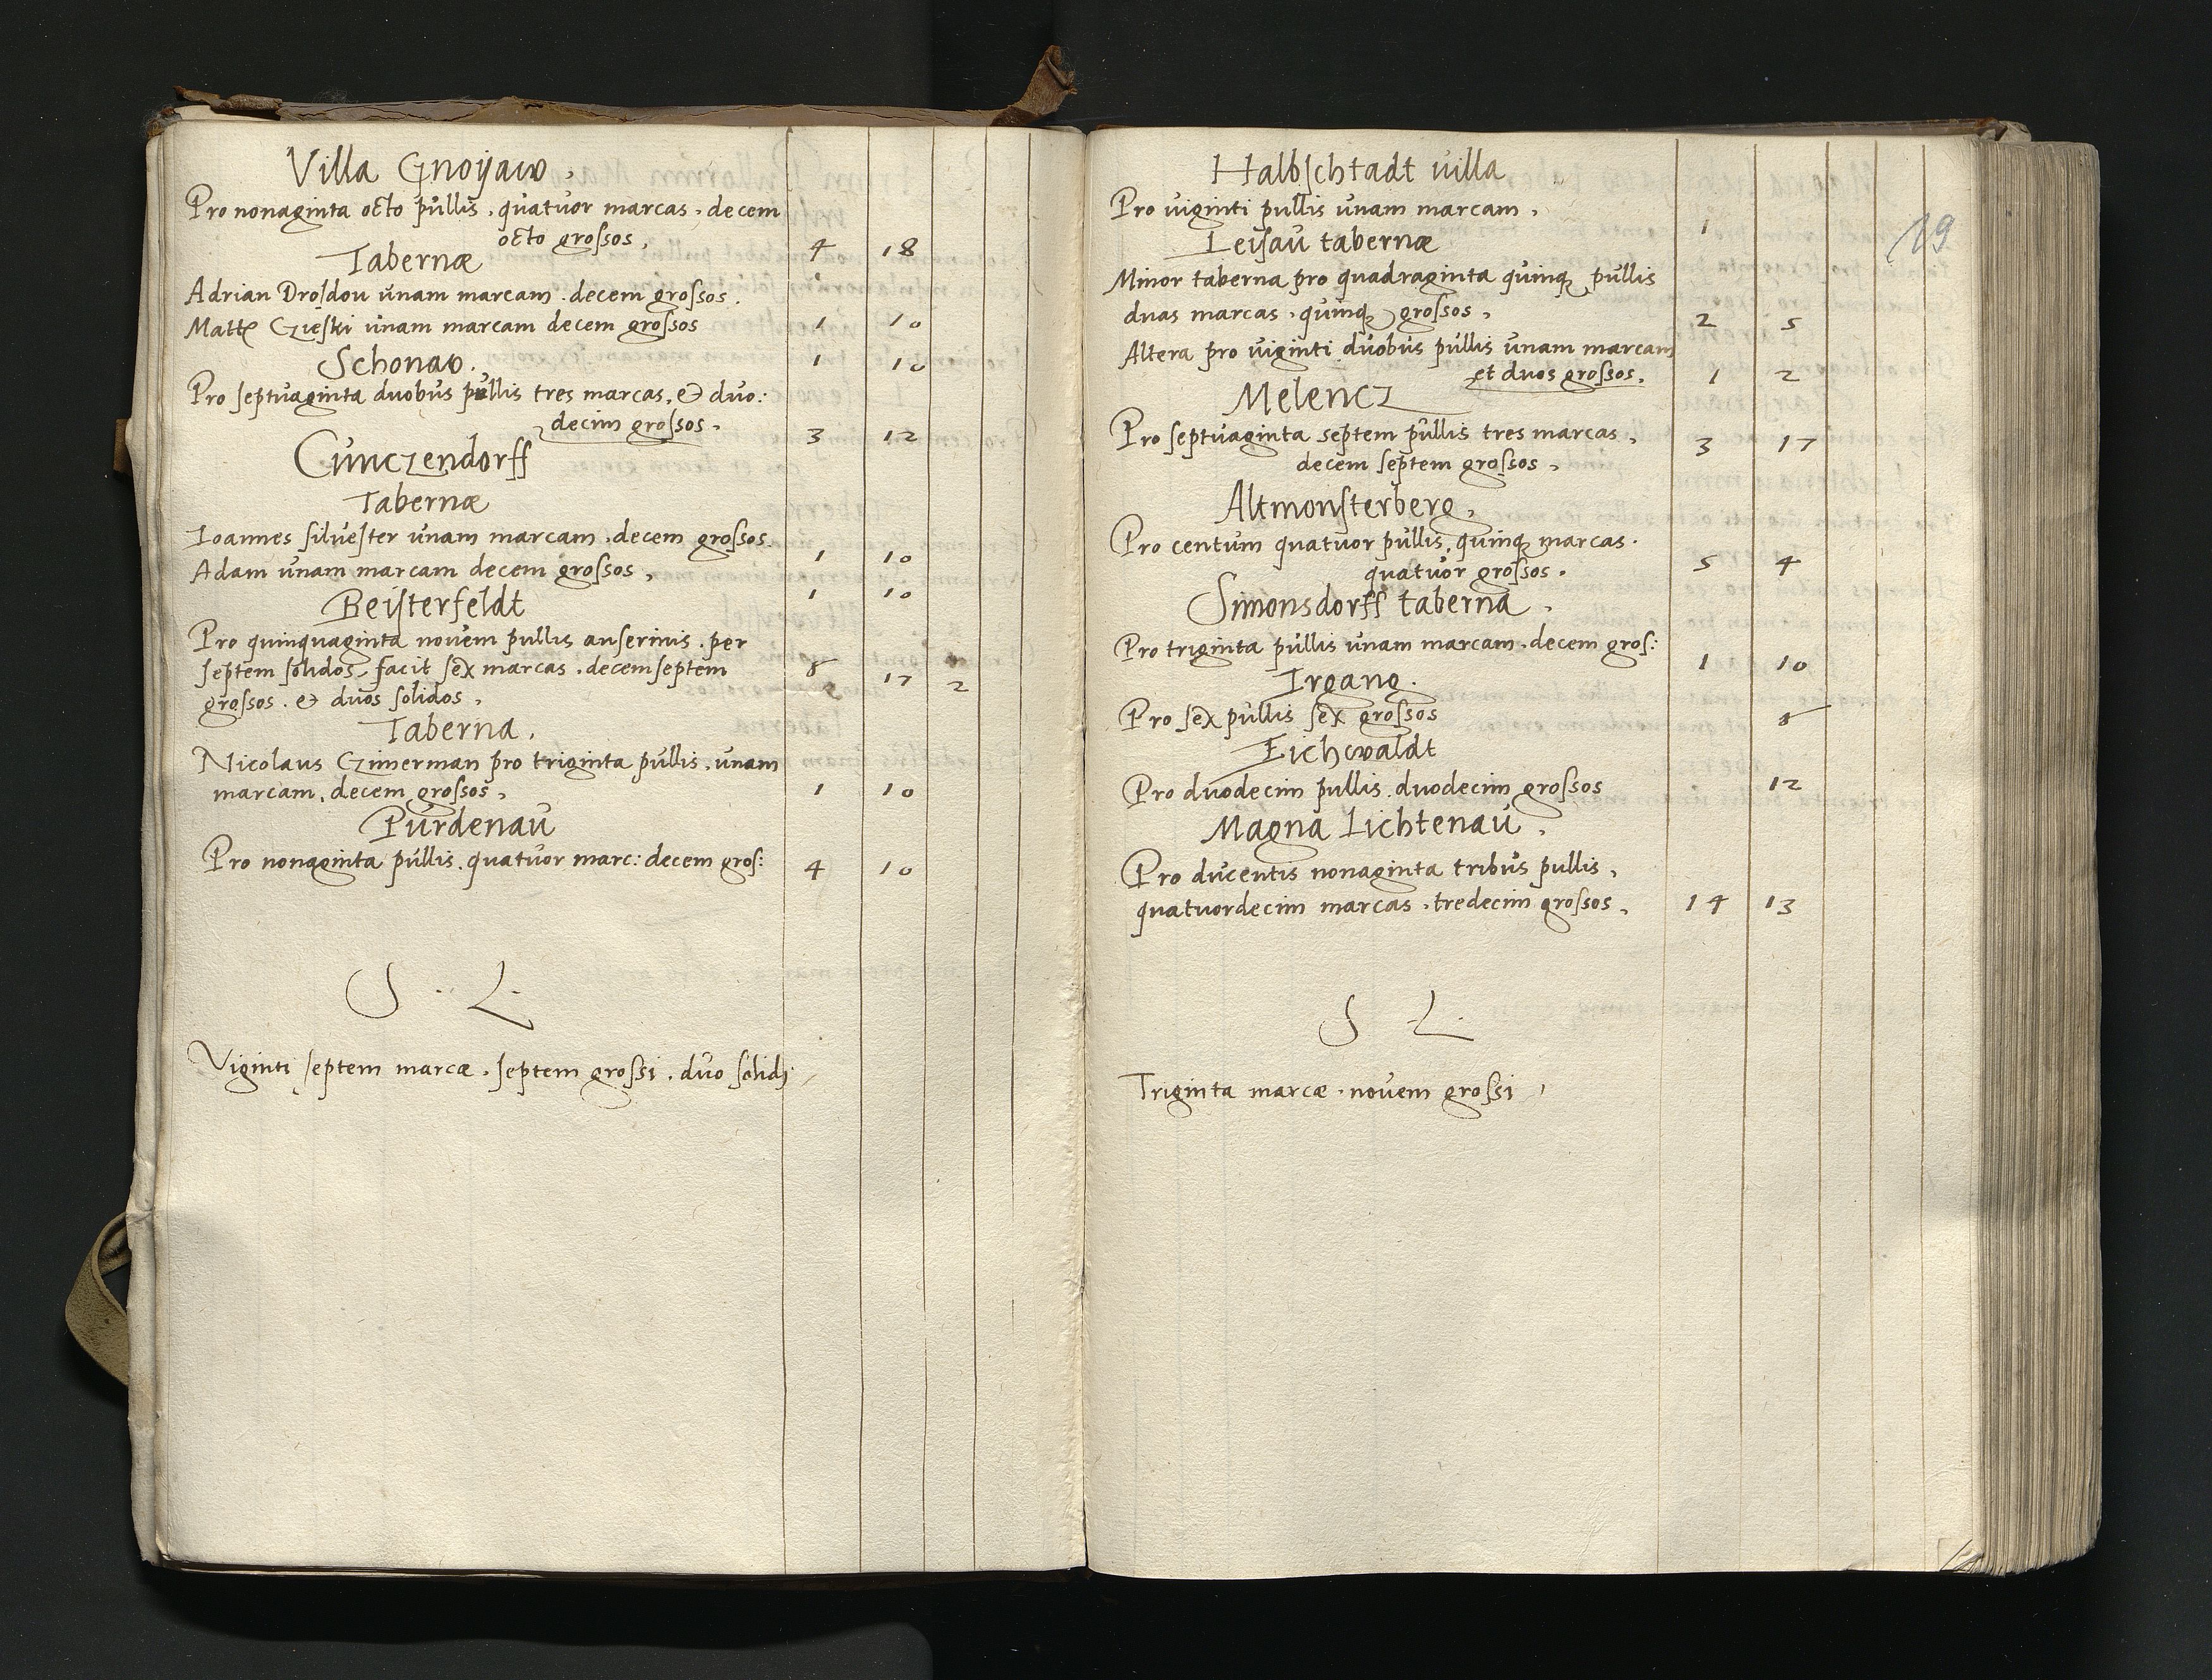 Villa Gnoÿaw.
Pro nonaginta octo pullis. quatuor marcas. decem
octo grossos, 4 18
Tabernæ
Adrian Drosdou unam marcam. decem grossos.
Matts Gieski unam marcam decem grossos 1 10
Schonaw. 1 10
Pro septuaginta duobus pullis tres marcas, & duo:
decim grossos. 3 12
Cunczendorff
Tabernæ
Ioannes silvester unam marcam. decem grossos. 1 10
Adam unam marcam decem grossos, 1 10
Beisterfeldt
Pro quinquaginta novem pullis anserinis. per
septem solidos. facit sex marcas. decemseptem 17 2
grossos. & duos solidos,
Taberna.
Nicolaus Czimerman pro triginta pullis. unam
marcam, decem grossos, 1 10
Purdenau
Pro nonaginta pullis. quatuor marc: decem gros: 4 10
S. L.
Viginti septem marcæ. septem grossi. duo solidi
Halbschtadt villa
Pro viginti pullis unam marcam, 1
19
Leisau tabernæ
Minor taberna pro quadraginta quinq; pullis
duas marcas. quinq; grossos, 2 5
Altera pro viginti duobus pullis unam marcam
et duos grossos. 1 2
Melencz
Pro septuaginta septem pullis tres marcas, 3 17
decem septem grossos,
Altmonsterberg,
Pro centum quatuor pullis, quinq; marcas.
quatuor grossos. 5 4
Simonsdorff taberna.
Pro triginta pullis unam marcam. decem gros: 1 10
Irgang.
Pro sex pullis sex grossos 6
Eichwaldt
Pro duodecim pullis. duodecim grossos 12
Magna Lichtenau,
Pro ducentis nonaginta tribus pullis,
quatuordecim marcas. tredecim grossos, 14 13
S L.
Triginta marcæ. novem grossi,